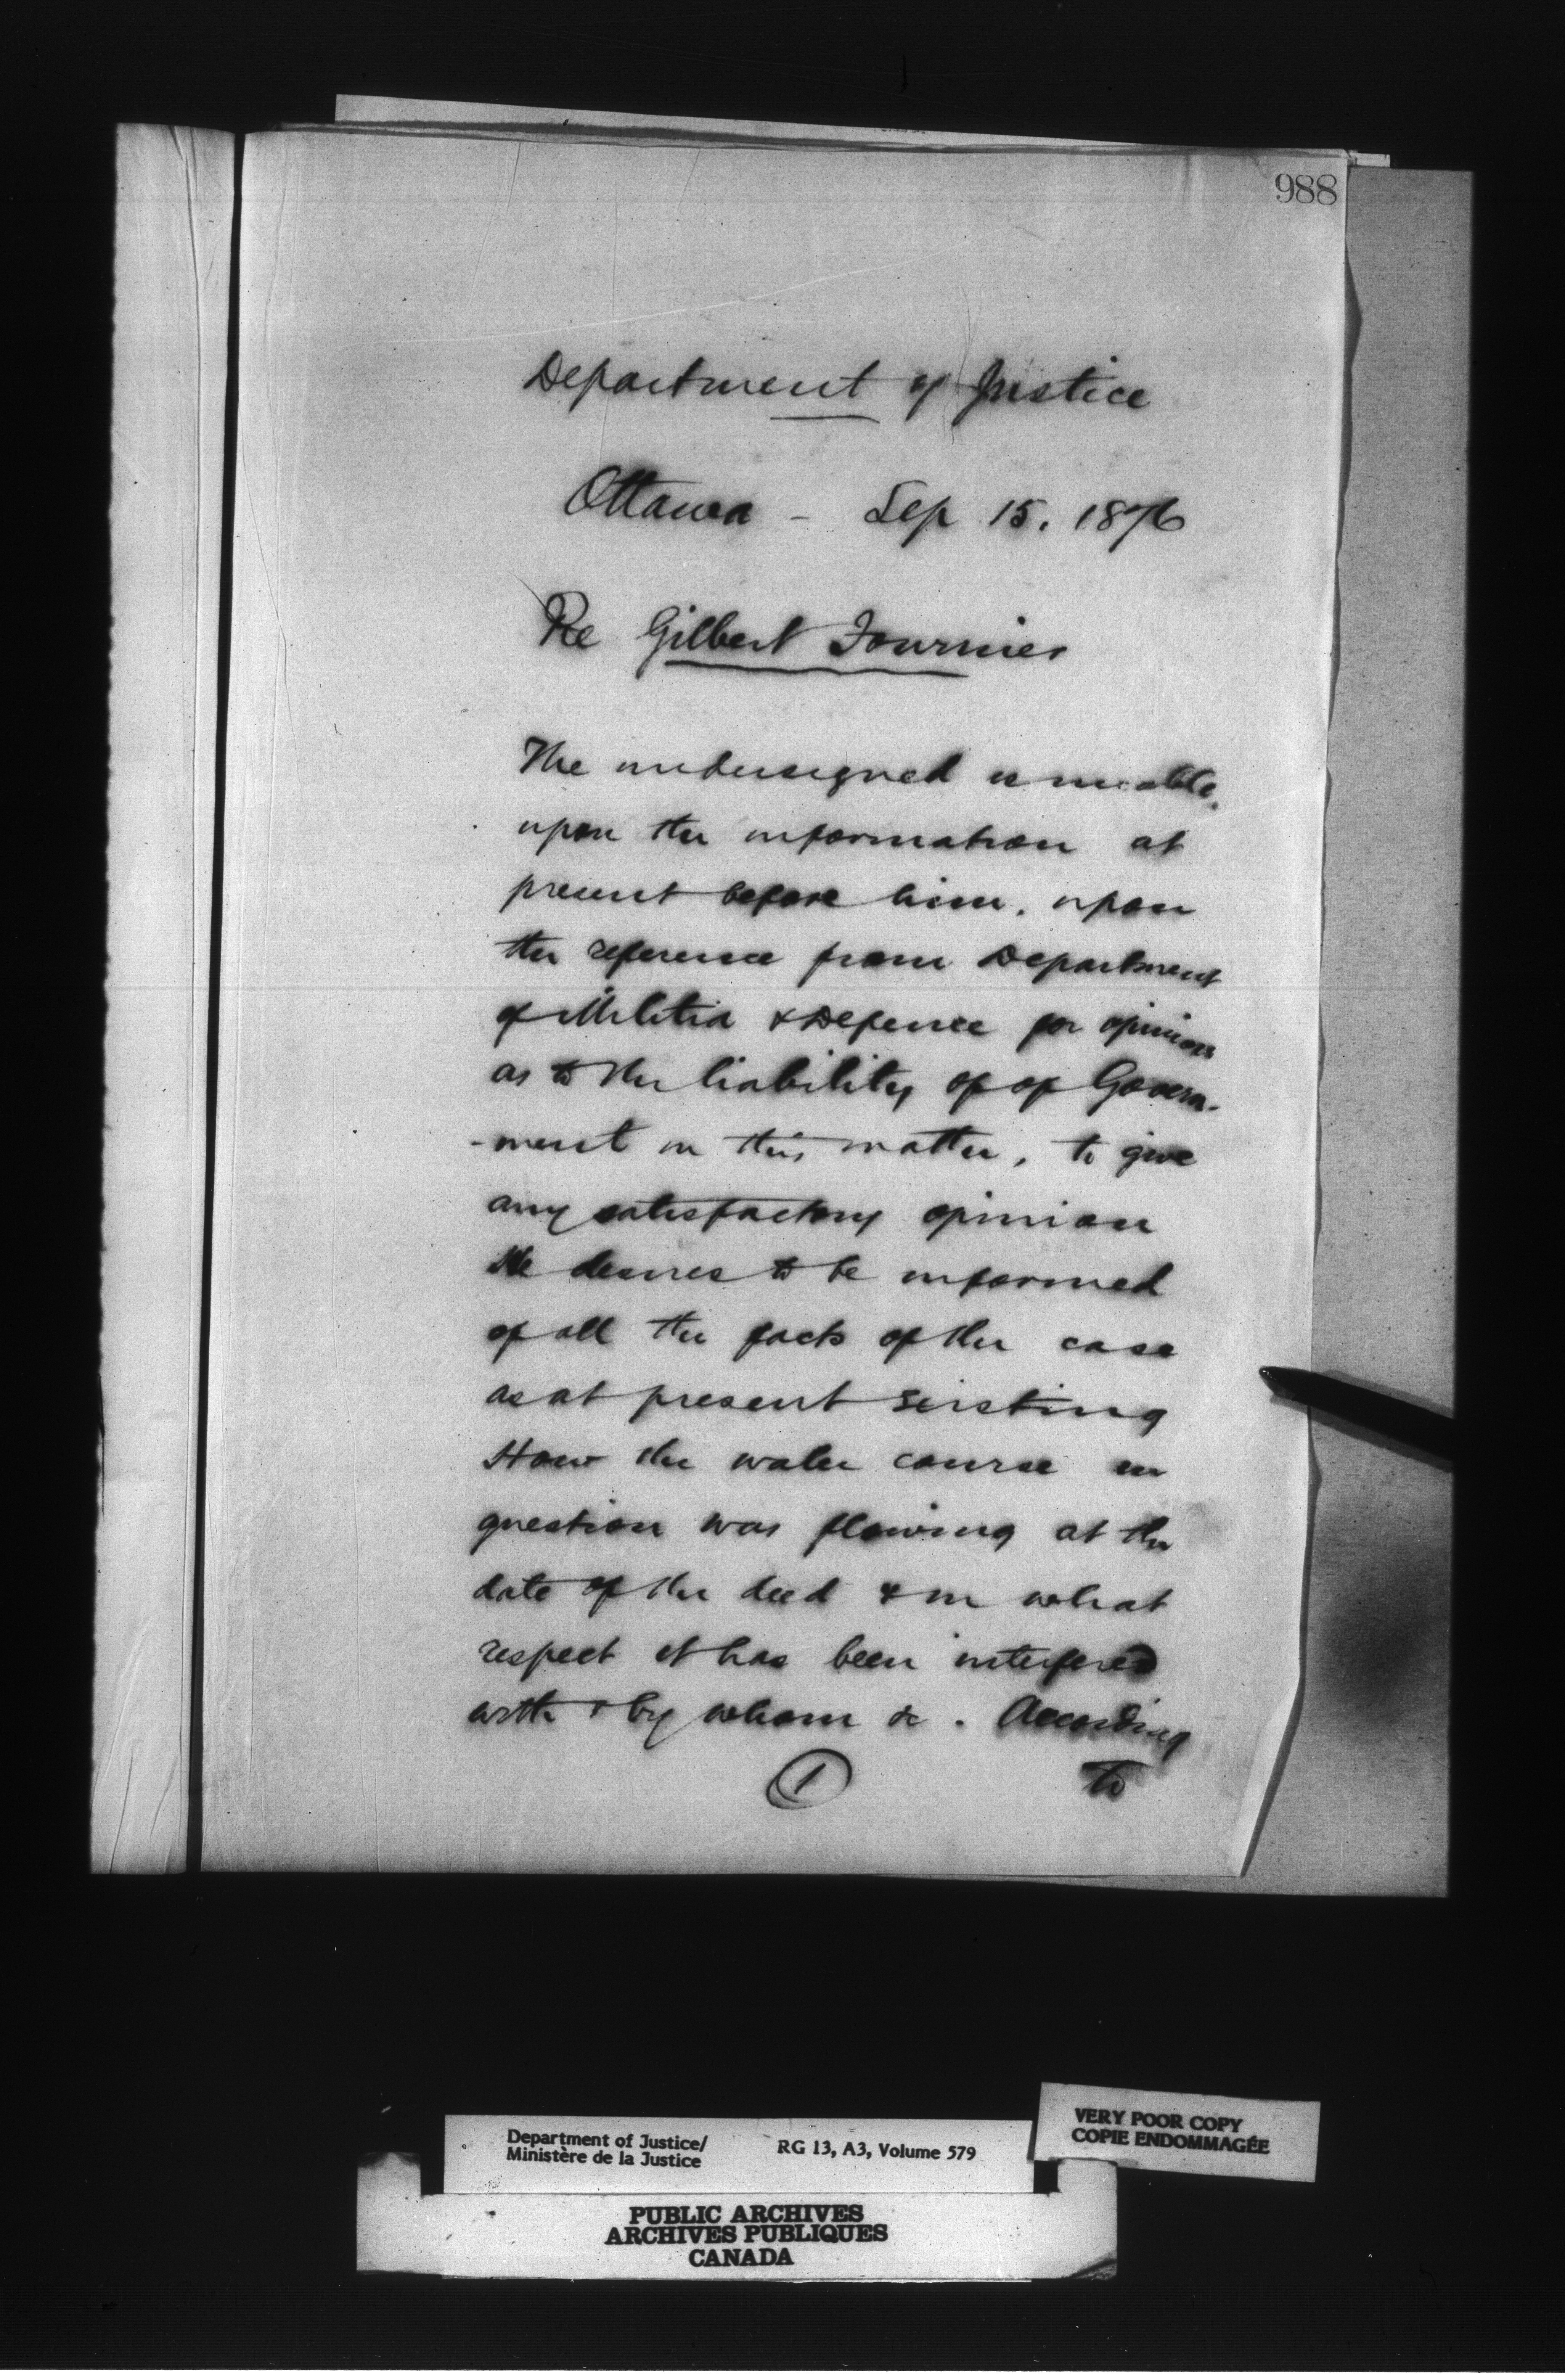 988
Department of Justice
Ottawa - Sep 15. 1876
Re Gilbert Fournier
The undersigned is unable,
upon the information at
present before him, upon
the reference from Department
of Militia & Defence for opinion
as to the liability of of Govern-
-ment in this matter, to give
any satisfactory opinion
He desires to be informed
of all the facts of the case
as at present existing
How the water course in
question was flowing at the
date of the deed & in what
respect it has been interfered
with & by whom &c. According
1 to
Department of Justice/
Ministère de la Justice
RG 13, A3, Volume 579
VERY POOR COPY
COPIE ENDOMMAGÉE
PUBLIC ARCHIVES
ARCHIVES PUBLIQUES
CANADA